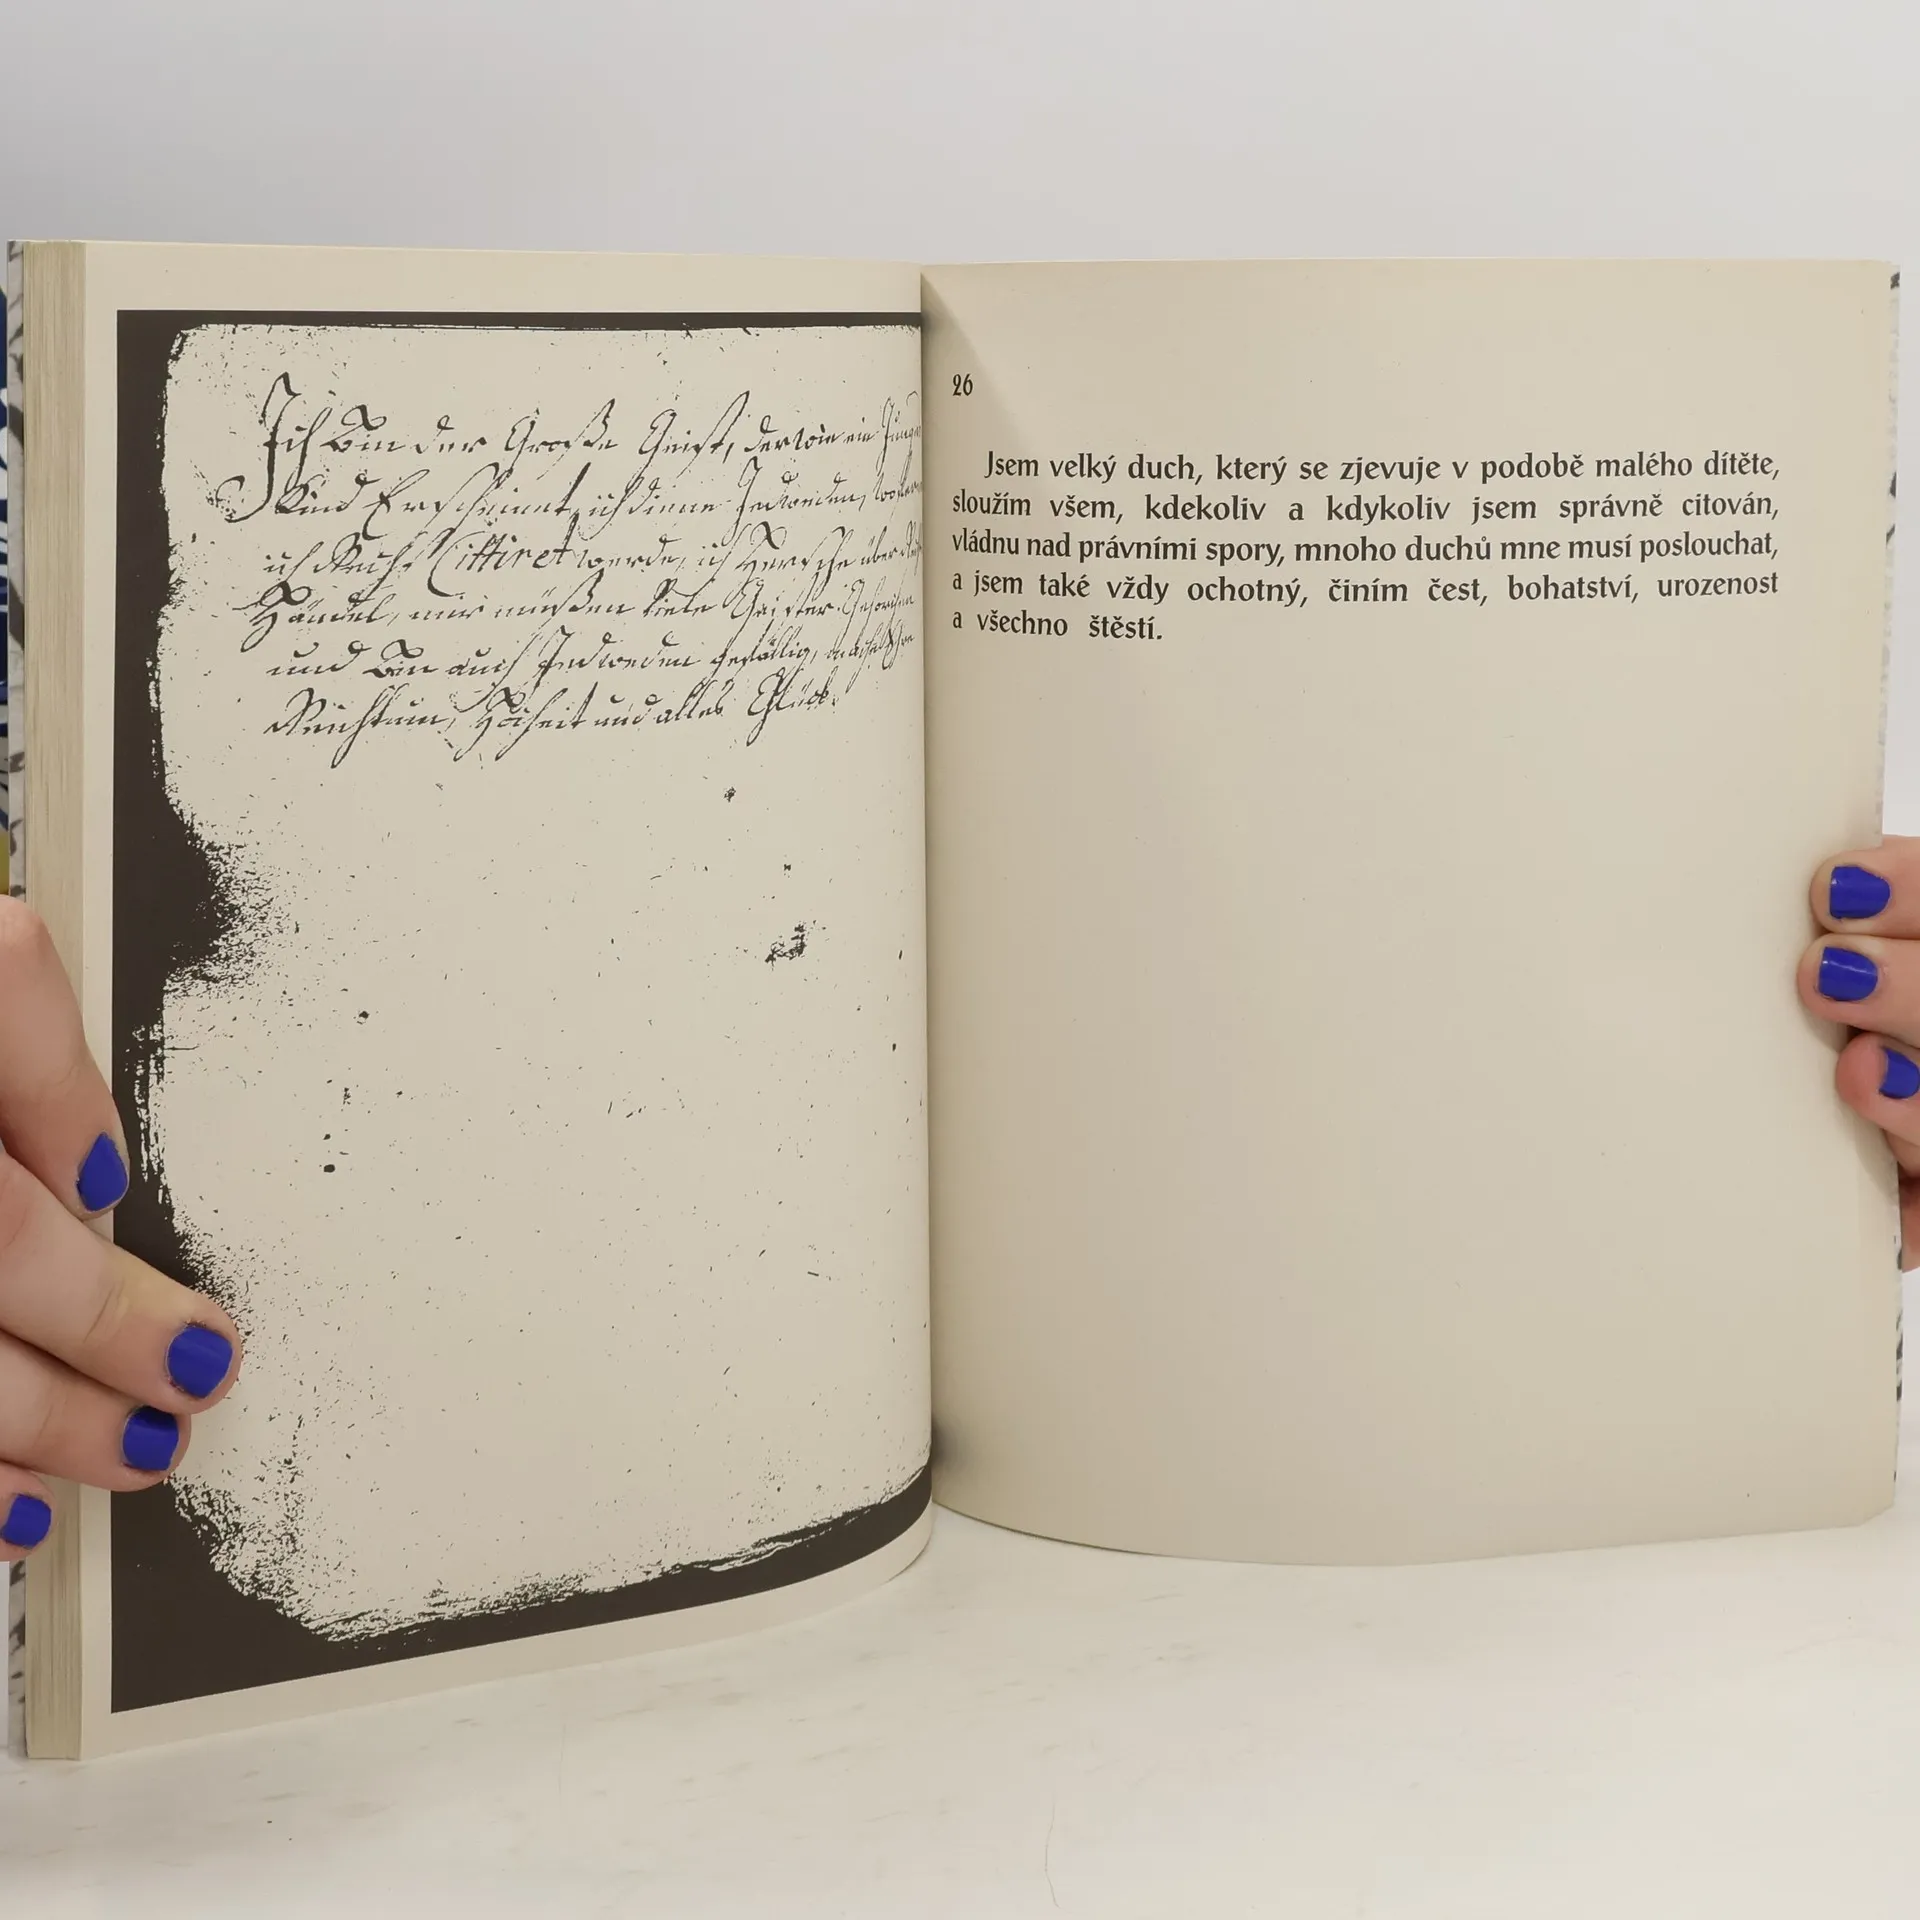 Ich bin der Große Geist, der wie ein Junges
Kind Erscheinet, ich diene Jedweden,
ich Recht Cittiret werde, ich Hersche über
Händel, mir müßen Viele Geister Gehorchen
und bin auch Jedweden gefällig, mache Ehre
Reichtum, Hoheit und alles Glück.
26
Jsem velký duch, který se zjevuje v podobě malého dítěte,
sloužím všem, kdekoliv a kdykoliv jsem správně citován,
vládnu nad právními spory, mnoho duchů mne musí poslouchat,
a jsem také vždy ochotný, činím čest, bohatství, urozenost
a všechno štěstí.